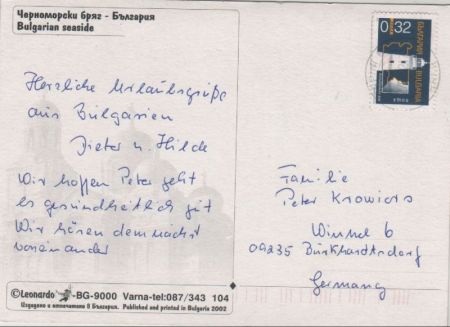 Черноморски бряг - България
Bulgarian seaside
0,32
БЪЛГАРИЯ BULGARIA
Herzliche Urlaubsgrüße
aus Bulgarien
Dieter u. Hilde
Wir hoffen Peter geht
es gesundheitlich gut
Wir hören demnächst
voneinander
Familie
Peter Krowiors
Winkel 6
09235 Burkhardtsdorf
Germany
©Leonardo -BG-9000 Varna-tel:087/343 104
Издадено и отпечатано в България. Published and printed in Bulgaria 2002